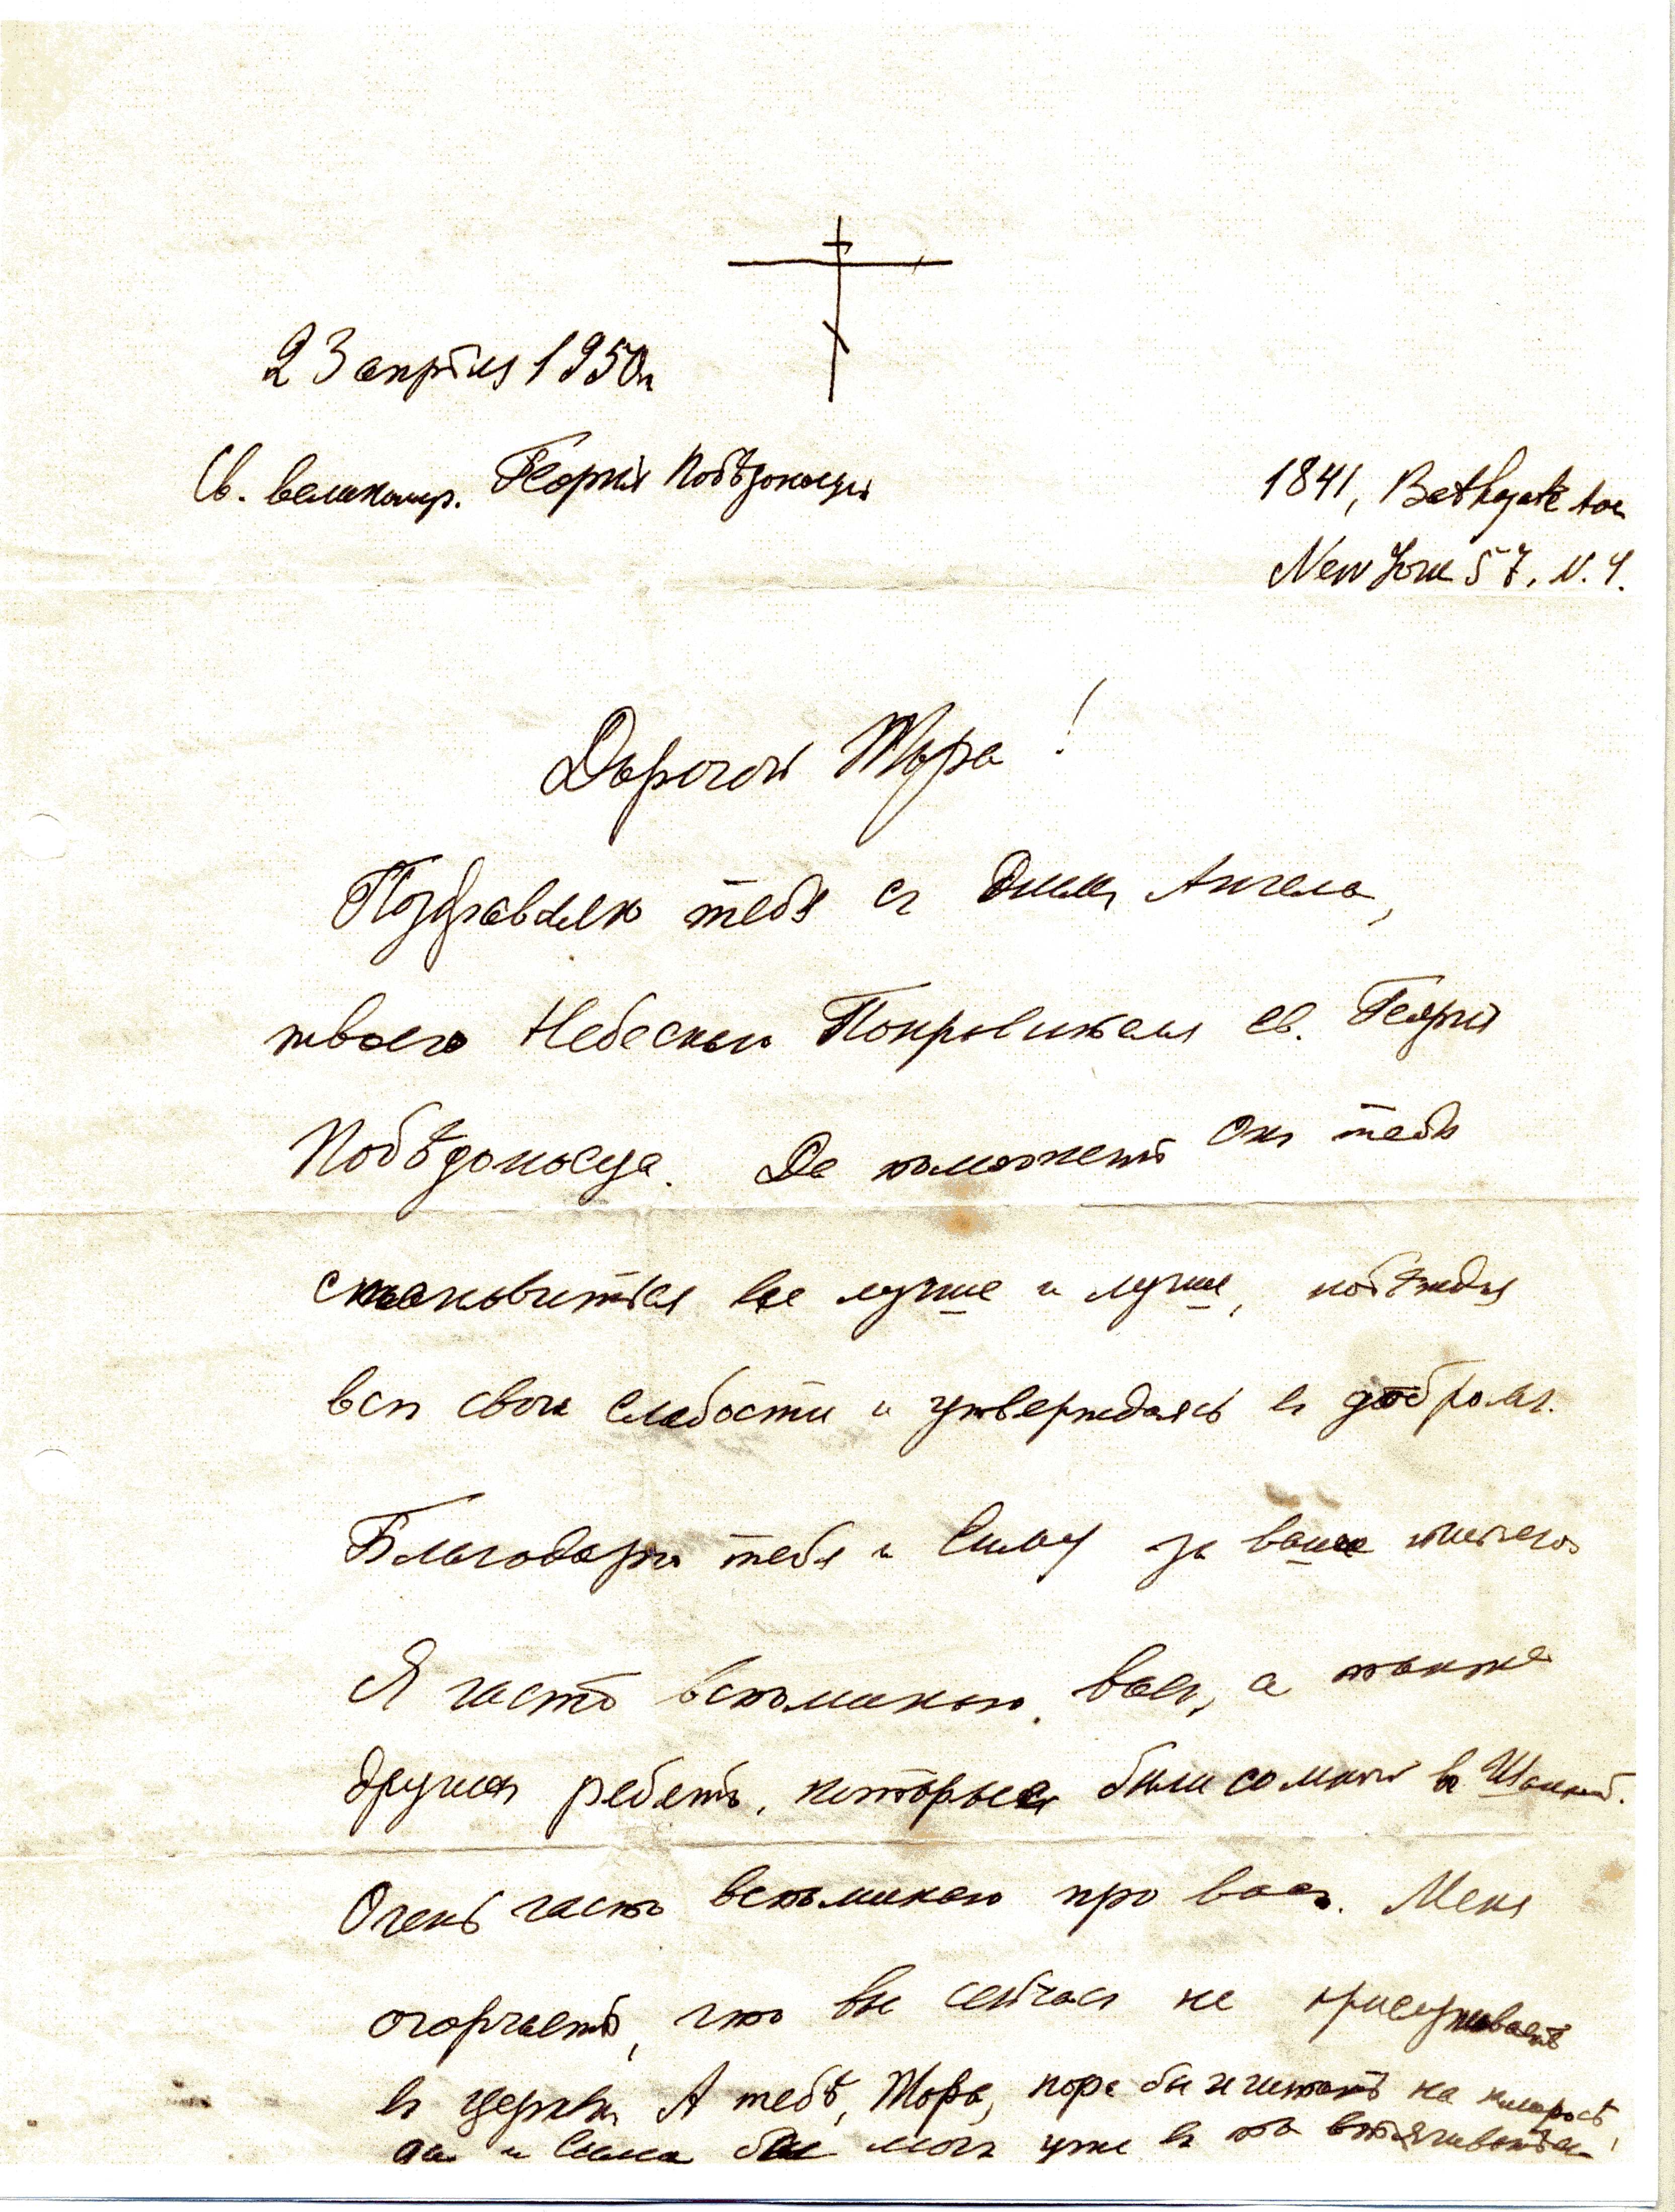 23 апрѣля 1950г
Св. великомр. Георгія Побѣдоносца
1841, Bathgate Ave
New York 57, N.Y.
Дорогой Жора!
Поздравляю тебя съ Днемъ Ангела,
твоего Небеснаго Покровителя св. Георгія
Побѣдоносца. Да поможетъ Онъ тебѣ
становиться все лучше и лучше, побѣждая
всѣ свои слабости и утверждаясь въ добромъ.
Благодарю тебя и Симу за ваше письмо
Я часто вспоминаю васъ, а также
другихъ ребятъ, которые были со мной въ
Очень часто вспоминаю про васъ. Меня
огорчаетъ, что вы сейчасъ не прислуживаете
въ церкви. А тебѣ, Жора, пора бы и читать на клиросѣ,
да и Сима бы могъ уже въ это втягиваться